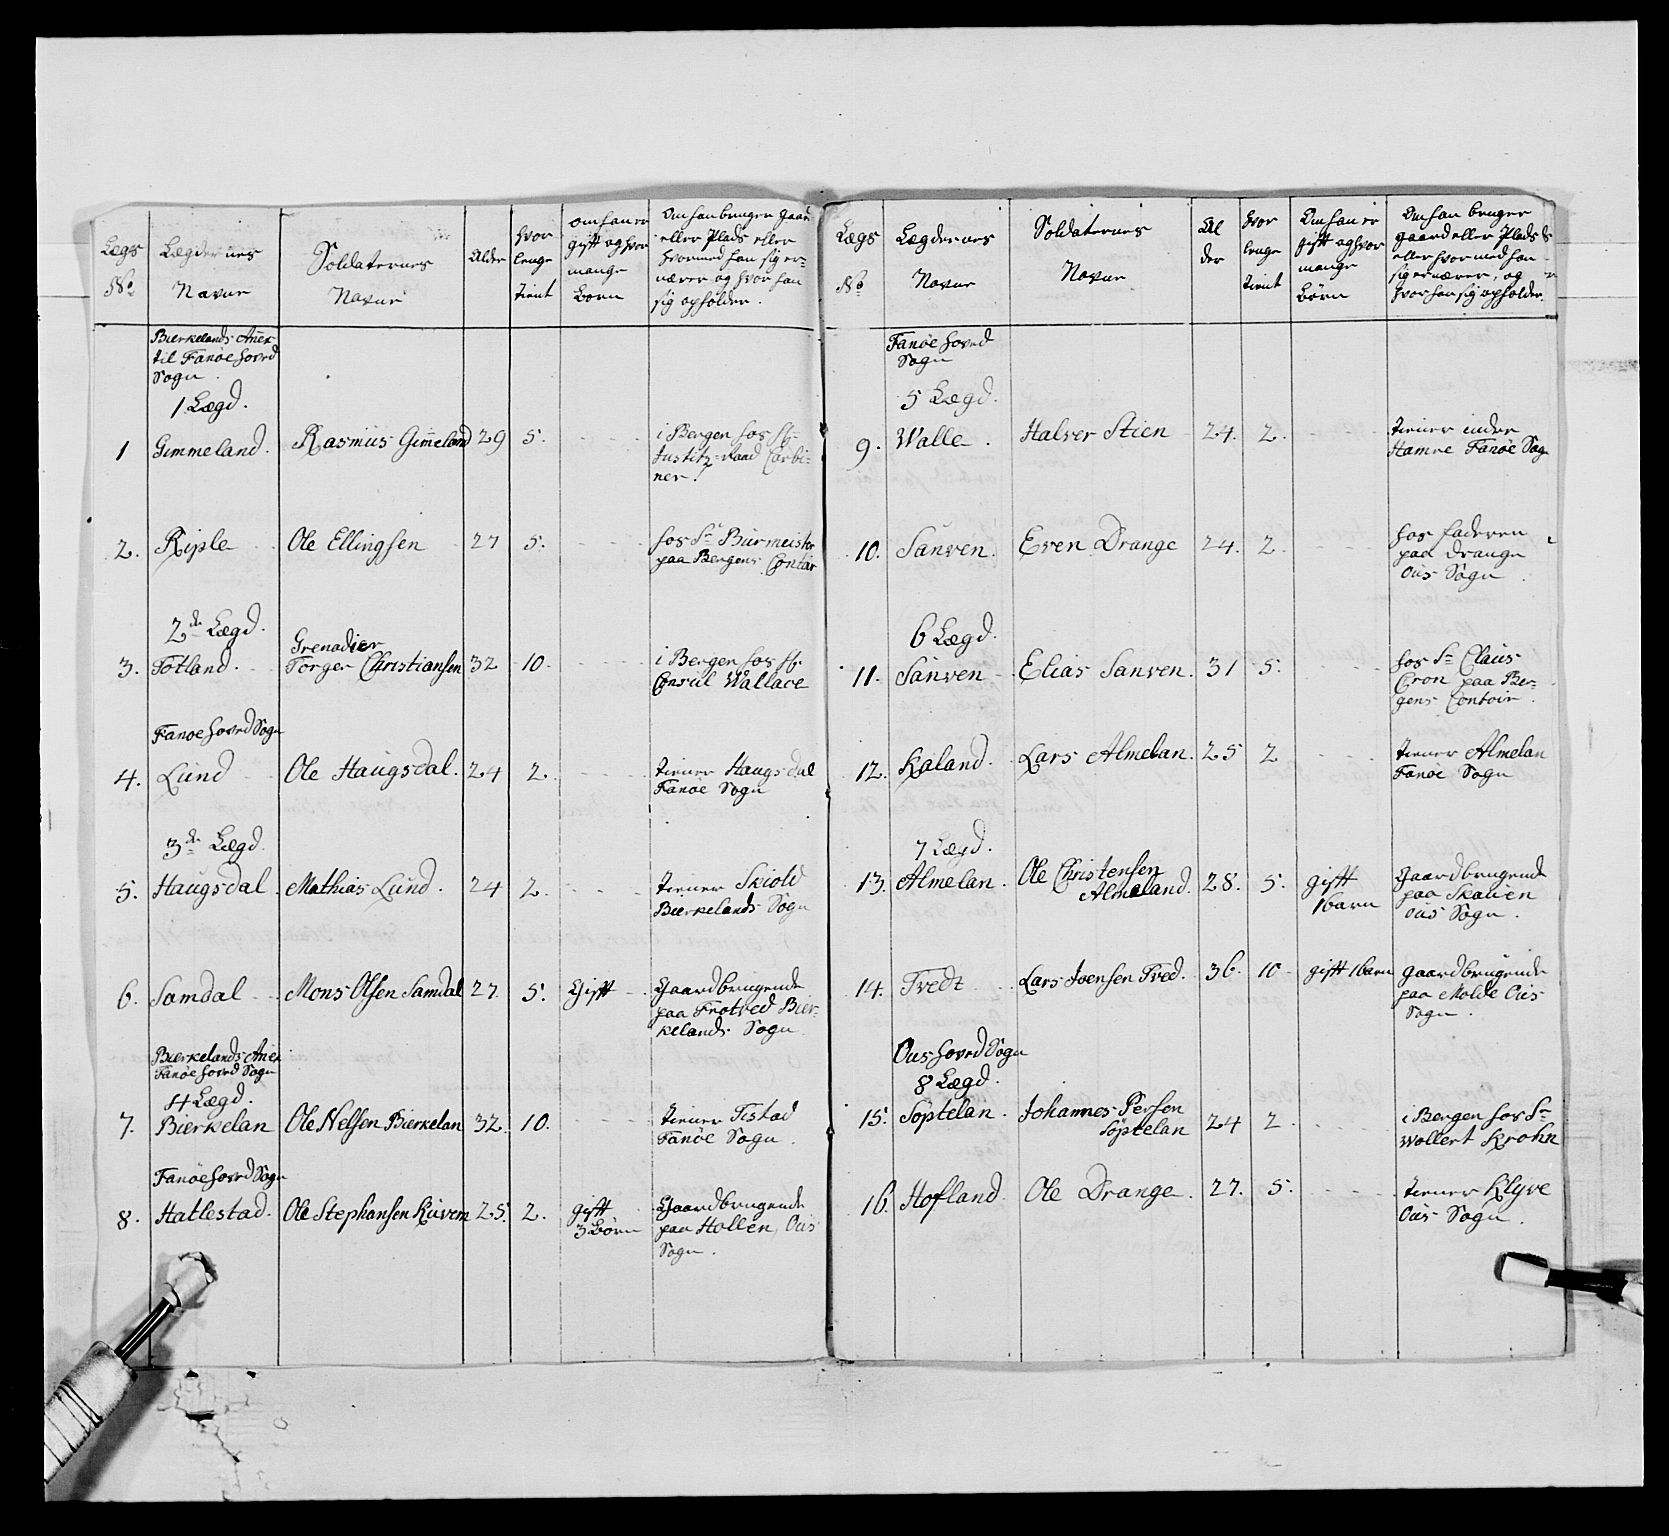 Lægs
No
Lægdernes
Navne
Soldaternes
Navne
Alder
hvor
lenge
tient
om han er
gift og hvor
mange
Børn
Om han bruger Gaard
eller Plads eller
hvormed han sig er-
nærer og hvor han
sig opholder.
Bierkelands Anex
til Fanøe hoved
Sogn.
1 Lægd.
1 Gimmeland. Rasmus Gimeland 29 5. i Bergen hos Hr
Justitz-raad Carbi-
ner.
2. Riple Ole Ellingsen 27 5. hos Sr Burmeister
paa Bergens Contoir
2de Lægd.
Grenadier
3. Totland. Torger Christiansen 32 10. i Bergen hos Hr
Consul Wallace
Fanoe hoved Sogn
4. Lund Ole Haugsdal. 24 2. tiener Haugsdal
Fanoe Sogn
3de Lægd.
5. Haugsdal. Mathias Lund. 24 2. tiener Skiold
Bierkelands Sogn
6. Samdal Mons Olsen Samdal 27 5. Gift Gaardbrugende
paa Frotved Bier-
kelands Sogn
Bierkelands Anex
Fanøe hoved Sogn
4 Lægd.
7. Bierkelan Ole Nelsen Bierkelan 32. 10. tiener Tistad
Fanöe Sogn.
Fanöe hoved Sogn
8. Hatlestad. Ole Stephansen Kuvem 25. 2. gift
3 Börn
Gaardbrugende
paa Hollen, Ous
Sogn.
Lægs
No
Lægdernes
Navne
Soldaternes
Navne
Al
der
hvor
lenge
tient
Om han er
gift og hvor
mange
Börn
Om han bruger
gaard eller Plads
eller hvormed han
sig ernærer, og
hvor han sig opholder.
Fanöe hoved
Sogn
5 Lægd.
9. Walle. Halver Stien 24. 2. tiener indre
Hamre Fanöe Sogn
10. Sanven. Even Drange 24. 2. hos faderen
paa Drange
Ous Sogn.
6 Lægd.
11. Sanven Elias Sanven. 31 5. hos Sr Claus
Cron paa Ber-
gens Contoir.
12. Kaland. Lars Almelan. 25 2 tiener Almelan
Fanöe Sogn
7 Lægd.
13. Almelan. Ole Christensen
Almeland. 28. 5. gift
1 barn
Gaardbrugende
paa Skauen
Ous Sogn.
14. Tvedt Lars Joensen Tved. 36. 10 gift 1 barn gaardbrugende
paa Molde Ous
Sogn.
Ous hoved Sogn
8 Lægd.
15. Söptelan. Johannes Persen
Söptelan 24 2. i Bergen hos Sr
Wollert Krohn
16. Hofland. Ole Drange. 27. 5. tiener Klyve
Ous Sogn.